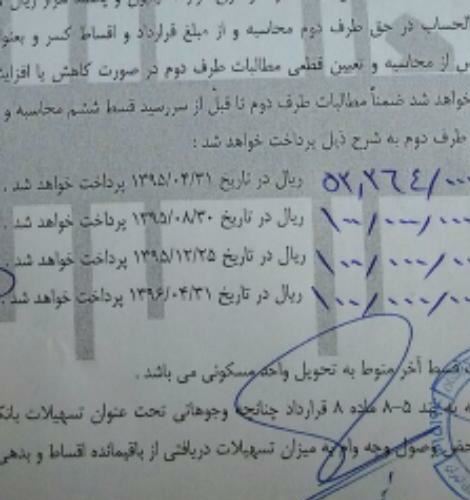 الحساب در حق طرف دوم محاسبه و از مبلغ قرارداد و اقساط کسر و بعنوان
از محاسبه و تعیین قطعی مطالبات طرف دوم در صورت کاهش یا افزایش
خواهد شد ضمناً مطالبات طرف دوم تا قبل از سررسید قسط ششم محاسبه و
طرف دوم به شرح ذیل پرداخت خواهد شد :
ریال در تاریخ ۱۳۹۵/۰۴/۳۱ پرداخت خواهد شد .
۱۰۰/۰۰۰/۰۰۰ ریال در تاریخ ۱۳۹۵/۰۸/۳۰ پرداخت خواهد شد .
۱۰۰/۰۰۰/۰۰۰ ریال در تاریخ ۱۳۹۵/۱۲/۲۵ پرداخت خواهد شد .
۱۰۰/۰۰۰/۰۰۰ ریال در تاریخ ۱۳۹۶/۰۴/۳۱ پرداخت خواهد شد .
قسط آخر منوط به تحویل واحد مسکونی می باشد .
به بند ۵-۸ ماده ۸ قرارداد چنانچه وجوهاتی تحت عنوان تسهیلات بانک
وصول وجه وام به میزان تسهیلات دریافتی از باقیمانده اقساط و بدهی